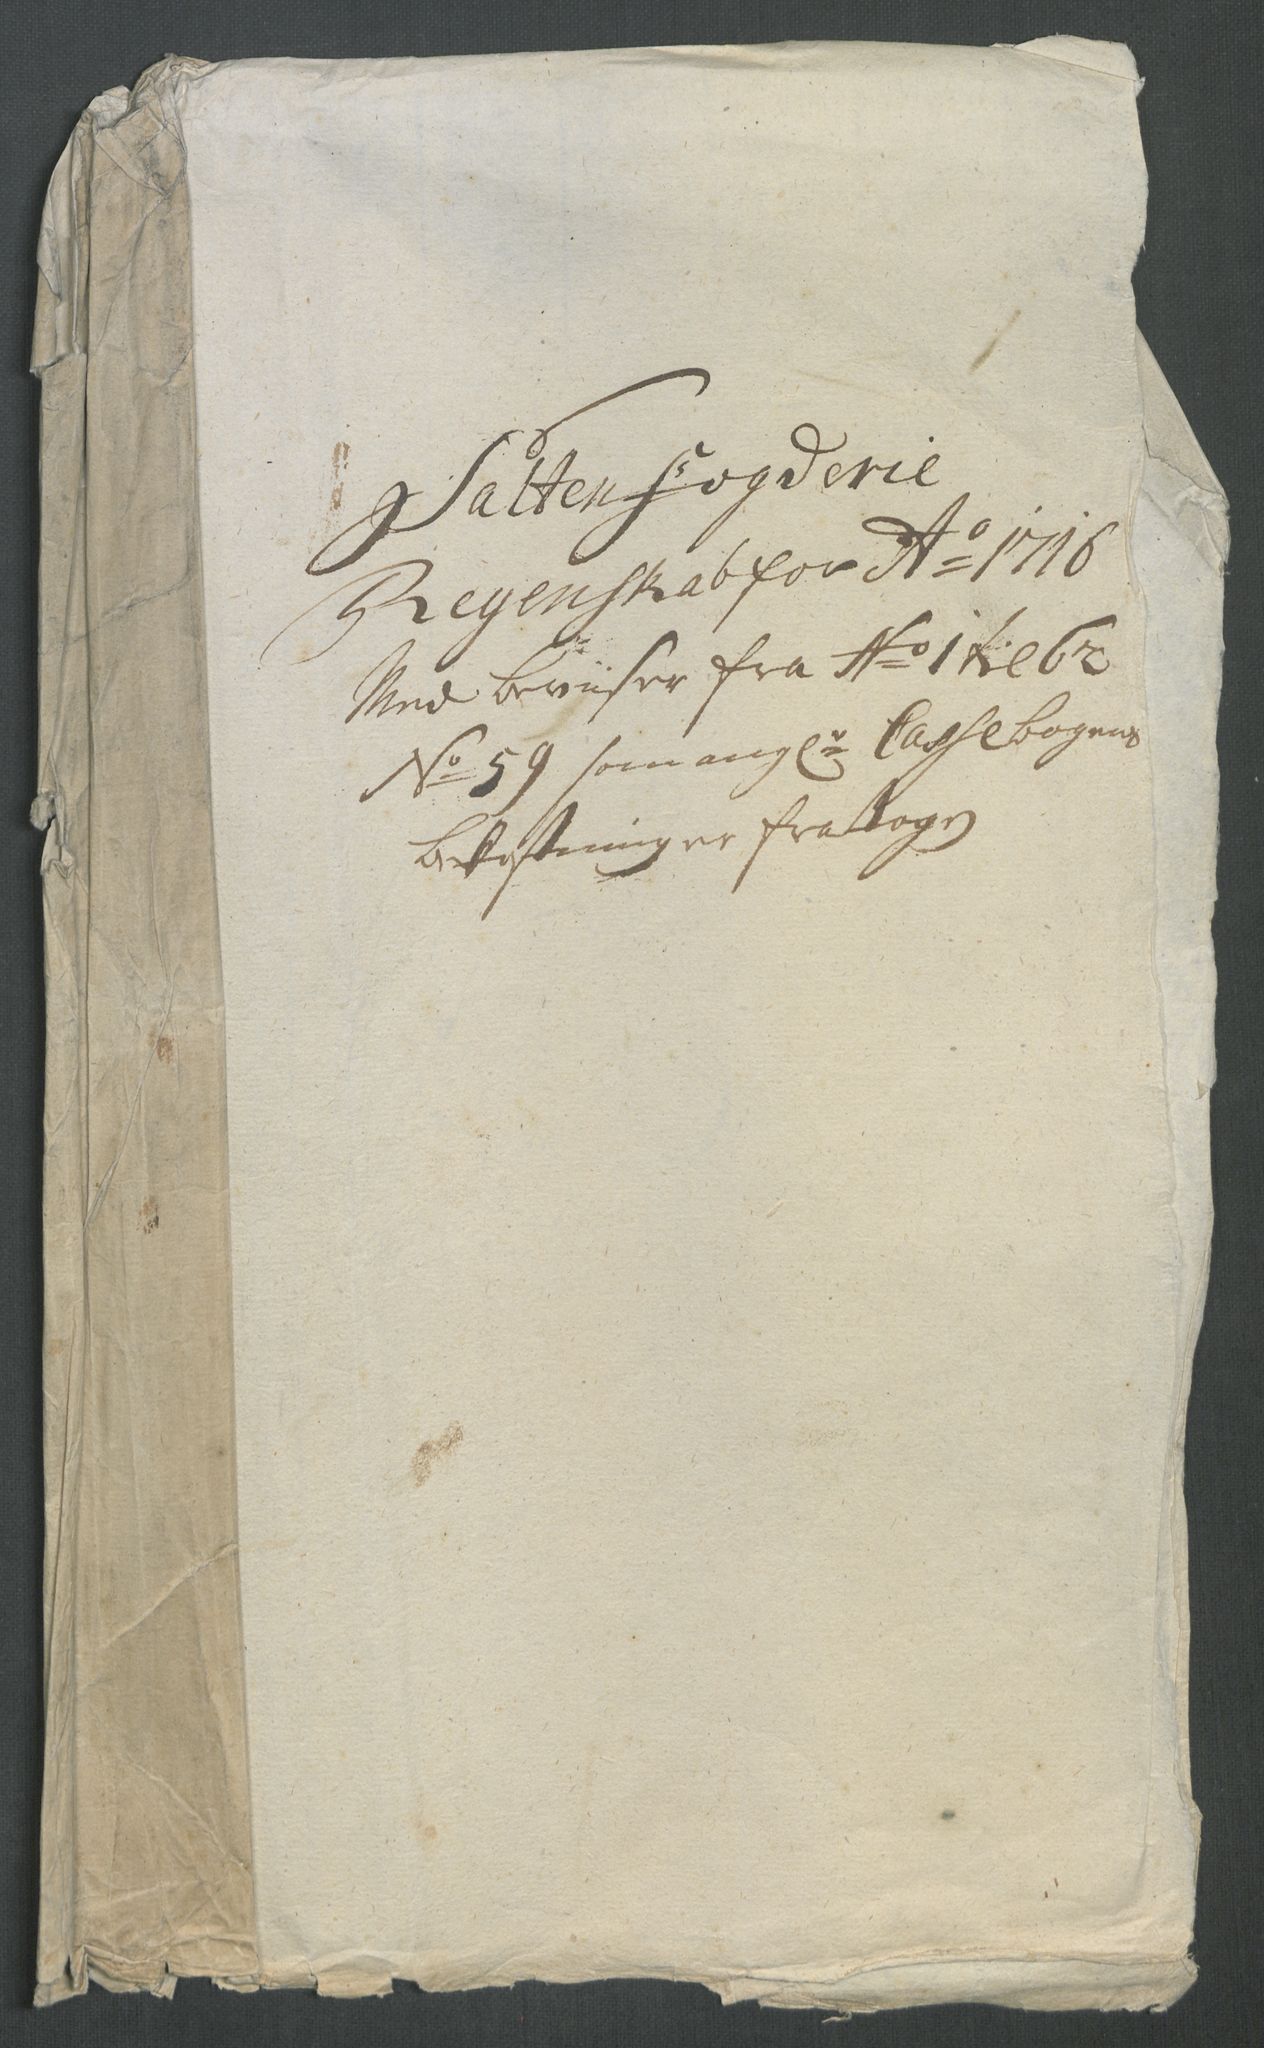 Salten Fogderie
Regenskab for Aº 1716
Med beviiser fra Nº 1 til 62
Nº 59 som angl: Cassebogens
bekostninger fratagen